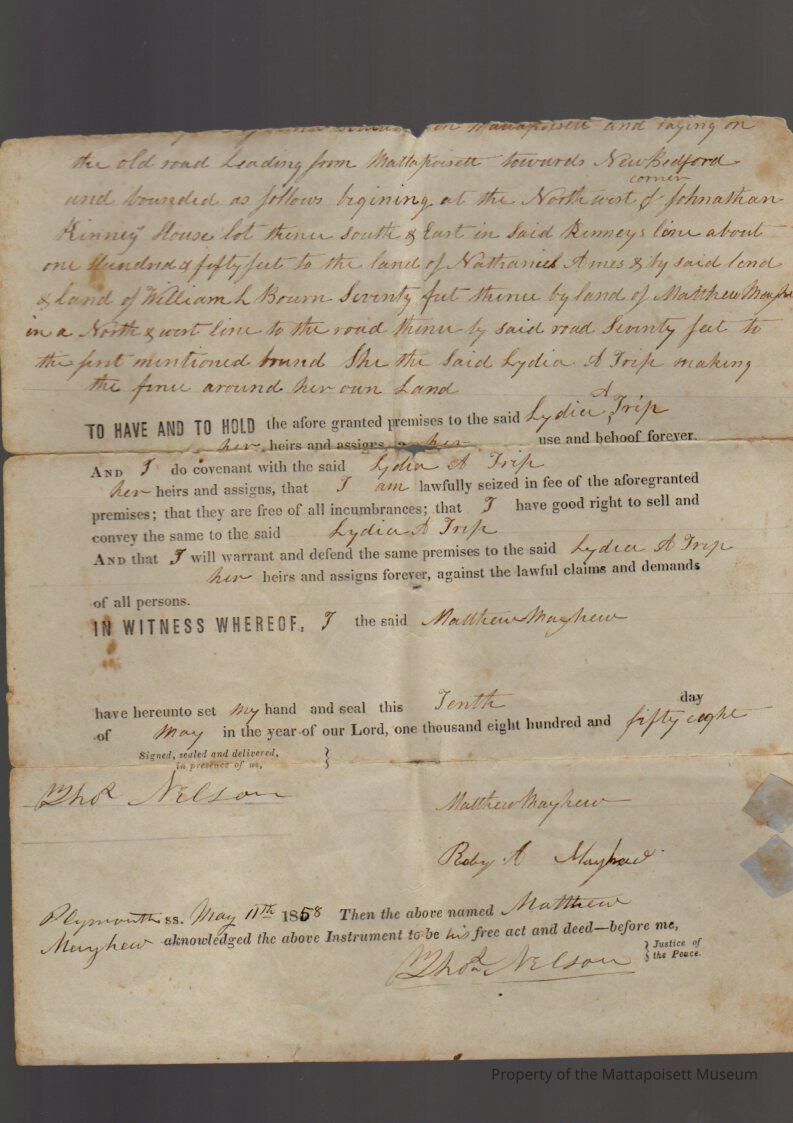 in Mattapoisett and laying on
the old road Leading from Mattapoisett towards New Bedford
and bounded as follows begining at the North west corner of Johnathan
Kinney House lot thence South & East in Said Kenneys line about
one Hundred & fifty feet to the land of Nathaniel Ames & by said lend
& land of William L Bourn Seventy feet thence by land of Matthew Mayhew
in a North & west line to the road thence by said road Seventy feet to
the first mentioned bound She the Said Lydia A Trip making
the fence around her own Land
TO HAVE AND TO HOLD the afore granted premises to the said Lydia A Trip
her heirs and assigns, her use and behoof forever.
AND I do covenant with the said Lydia A Trip
her heirs and assigns, that I am lawfully seized in fee of the aforegranted
premises; that they are free of all incumbrances; that I have good right to sell and
convey the same to the said Lydia A Trip
AND that I will warrant and defend the same premises to the said Lydia A Trip
her heirs and assigns forever, against the lawful claims and demands
of all persons.
IN WITNESS WHEREOF, I the said Matthew Mayhew
have hereunto set my hand and seal this Tenth day
of May in the year of our Lord, one thousand eight hundred and fifty eight
Signed, sealed and delivered,
in presence of us, }
Thos Nelson
Matthew Mayhew
Roby A Mayhew
Plymouth ss. May 11th 1858 Then the above named Matthew
Mayhew aknowledged the above Instrument to be his free act and deed—before me,
Thos Nelson } Justice of
the Peace.
Property of the Mattapoisett Museum